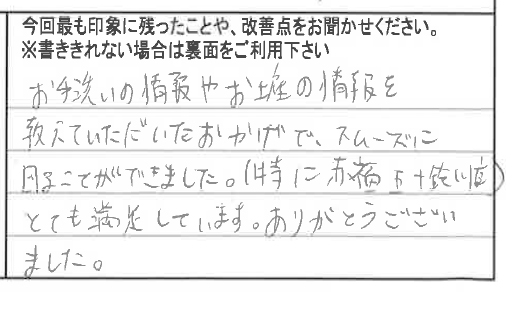 今回最も印象に残ったことや、改善点をお聞かせください。
※書ききれない場合は裏面をご利用下さい
お手洗いの情報やお土産の情報を
教えていただいたおかげで、スムーズに
回ることができました。(特に赤福五十鈴川店)
とても満足しています。ありがとうござい
ました。